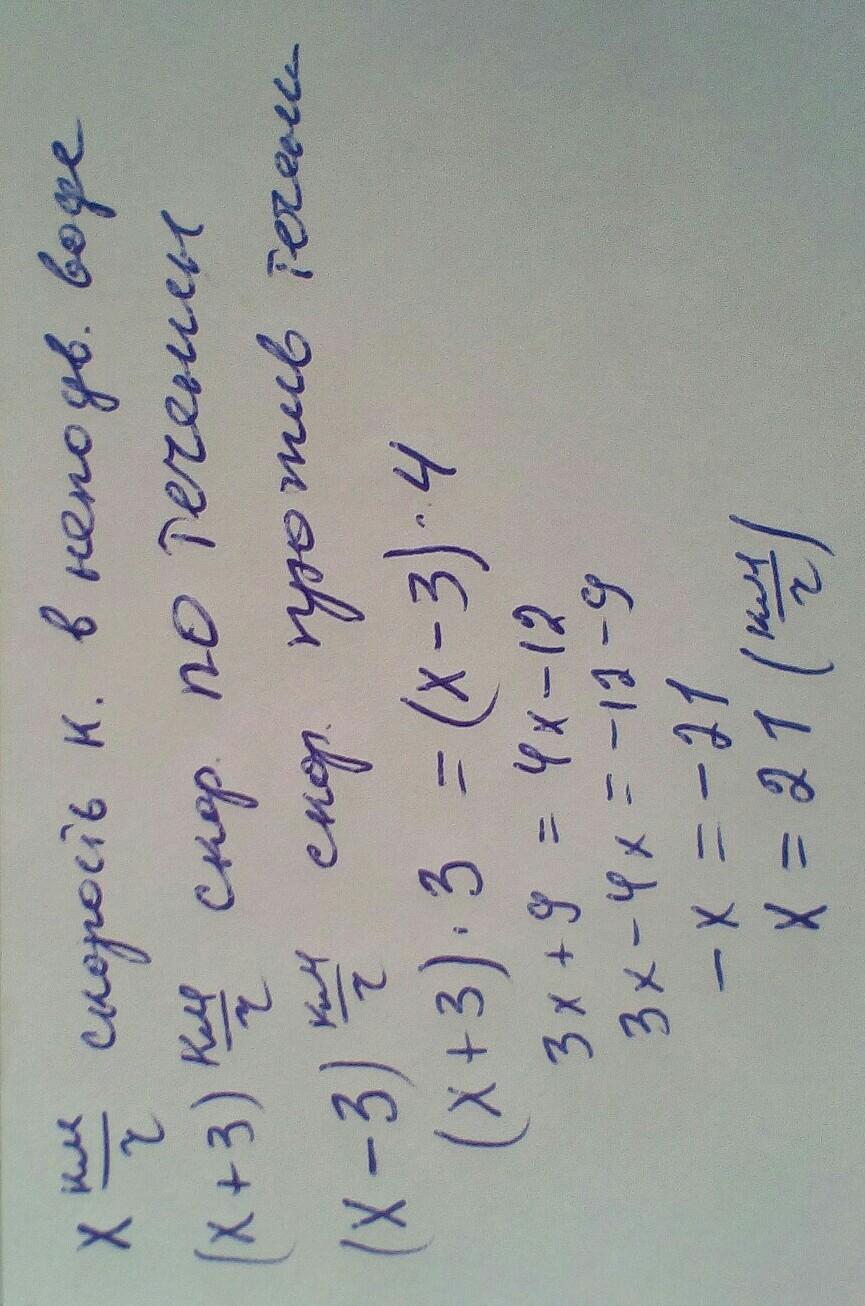 x км/ч скорость к. в неподв. воде
(x+3) км/ч скор. по течению
(x-3) км/ч скор. против течени
(x+3)·3 = (x-3)·4
3x+9 = 4x-12
3x-4x = -12-9
-x = -21
x = 21 (км/ч)